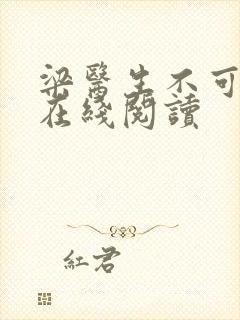 梁醫生不可
在綫閱讀
紅君